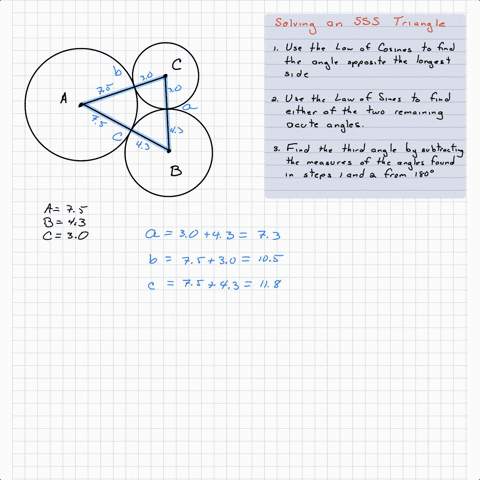 Solving an SSS Triangle
1. Use the Law of Cosines to find
the angle opposite the longest
side
2. Use the Law of Sines to find
either of the two remaining
acute angles.
3. Find the third angle by subtracting
the measures of the angles found
in steps 1 and 2 from 180°
C
b
7.5
3.0
3.0
A
a
7.5
C
4.3
4.3
B
A = 7.5
B = 4.3
C = 3.0
a = 3.0 + 4.3 = 7.3
b = 7.5 + 3.0 = 10.5
c = 7.5 + 4.3 = 11.8